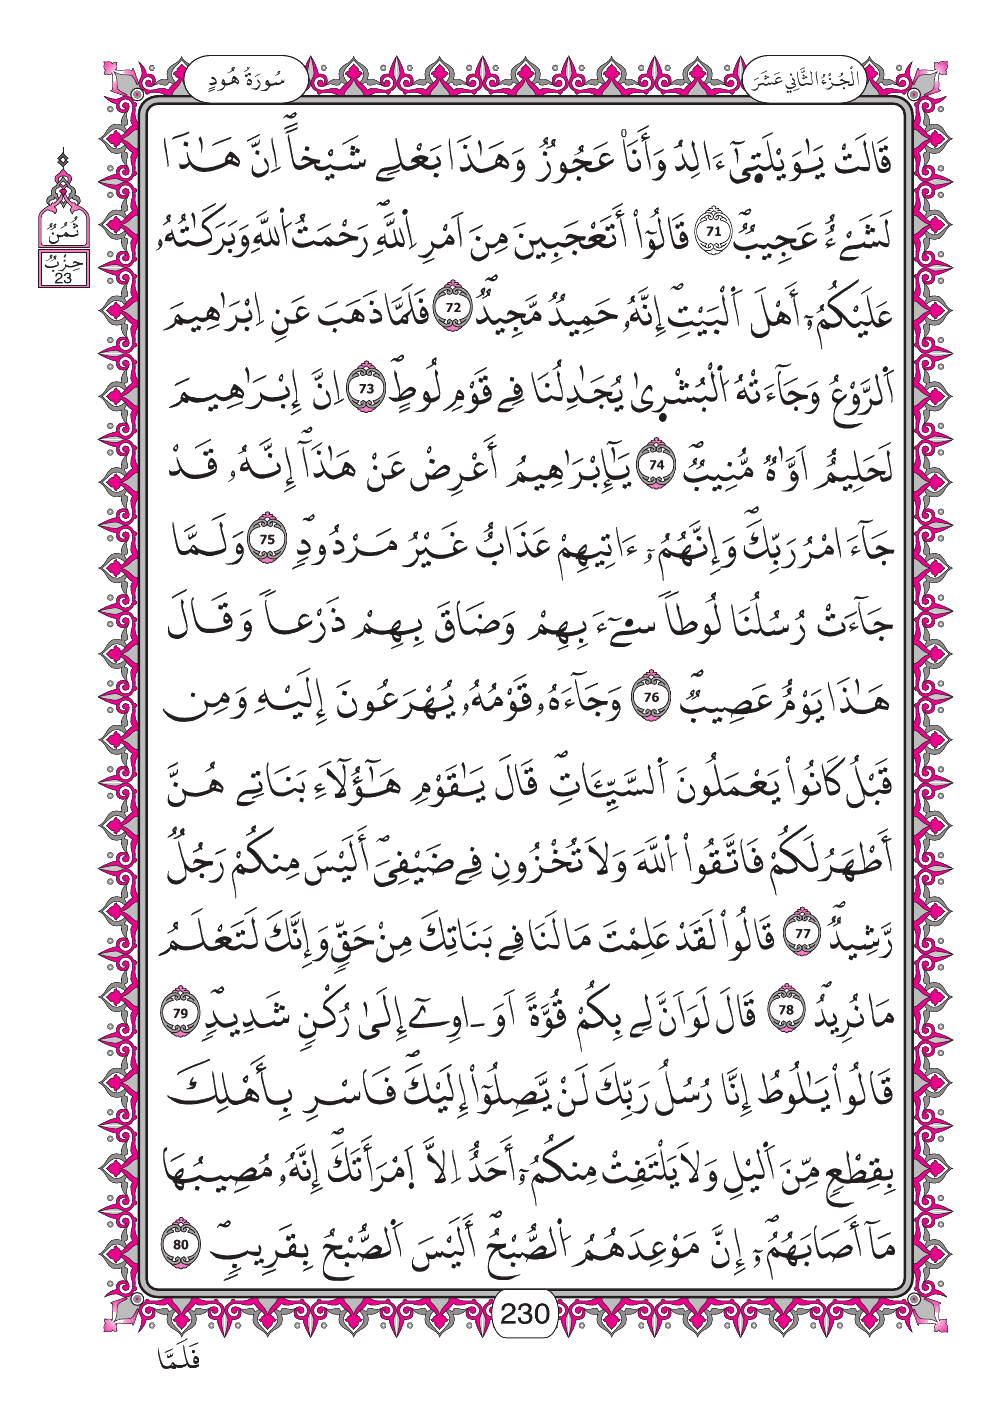 الْجُزْءُ الثَّانِي عَشَرَ
سُورَةُ هُودٍ
قَالَتْ يَٰوَيْلَت۪يٰٓ ءَا۬لِدُ وَأَنَا۠ عَجُوزٌ وَهَٰذَا بَعْلِے شَيْخاًۖ اِنَّ هَٰذَا
لَشَےْءٌ عَجِيبٌۖ 71 قَالُوٓاْ أَتَعْجَبِينَ مِنَ اَمْرِ اِ۬للَّهِۖ رَحْمَتُ اُ۬للَّهِ وَبَرَكَٰتُهُۥ
عَلَيْكُمُۥٓ أَهْلَ اَ۬لْبَيْتِۖ إِنَّهُۥ حَمِيدٌ مَّجِيدٌۖ 72 فَلَمَّا ذَهَبَ عَنِ اِبْرَٰهِيمَ
اَ۬لرَّوْعُ وَجَآءَتْهُ اُ۬لْبُشْر۪يٰ يُجَٰدِلُنَا فِے قَوْمِ لُوطٍۖ 73 اِنَّ إِبْرَٰهِيمَ
لَحَلِيمٌ اَوَّٰهٌ مُّنِيبٌۖ 74 يَٰٓإِبْرَٰهِيمُ أَعْرِضْ عَنْ هَٰذَآۖ إِنَّهُۥ قَدْ
جَآءَ امْرُ رَبِّكَۖ وَإِنَّهُمُۥٓ ءَاتِيهِمْ عَذَابٌ غَيْرُ مَرْدُودٍۖ 75 وَلَمَّا
جَآءَتْ رُسُلُنَا لُوطاً سِےٓءَ بِهِمْ وَضَاقَ بِهِمْ ذَرْعاً وَقَالَ
هَٰذَا يَوْمٌ عَصِيبٌۖ 76 وَجَآءَهُۥ قَوْمُهُۥ يُهْرَعُونَ إِلَيْهِ وَمِن
قَبْلُ كَانُواْ يَعْمَلُونَ اَ۬لسَّيِّـَٔاتِۖ قَالَ يَٰقَوْمِ هَٰٓؤُلَآءِ بَنَاتِے هُنَّ
أَطْهَرُ لَكُمْ فَاتَّقُواْ اُ۬للَّهَ وَلَا تُخْزُونِ فِے ضَيْفِيَۖ أَلَيْسَ مِنكُمْ رَجُلٌ
رَّشِيدٌۖ 77 قَالُواْ لَقَدْ عَلِمْتَ مَا لَنَا فِے بَنَاتِكَ مِنْ حَقٍّ وَإِنَّكَ لَتَعْلَمُ
مَا نُرِيدُۖ 78 قَالَ لَوَ اَنَّ لِے بِكُمْ قُوَّةً اَوَ ـ اوِےٓ إِلَىٰ رُكْنٍ شَدِيدٍۖ 79
قَالُواْ يَٰلُوطُ إِنَّا رُسُلُ رَبِّكَ لَنْ يَّصِلُوٓاْ إِلَيْكَۖ فَاسْرِ بِأَهْلِكَ
بِقِطْعٍ مِّنَ اَ۬ليْلِ وَلَا يَلْتَفِتْ مِنكُمُۥٓ أَحَدٌ اِلَّا اَ۪مْرَأَتَكَۖ إِنَّهُۥ مُصِيبُهَا
مَآ أَصَابَهُمُۥٓۖ إِنَّ مَوْعِدَهُمُ اُ۬لصُّبْحُۖ أَلَيْسَ اَ۬لصُّبْحُ بِقَرِيبٍۖ 80
ثُمُنٌ
حِزْبٌ
23
230
فَلَمَّا